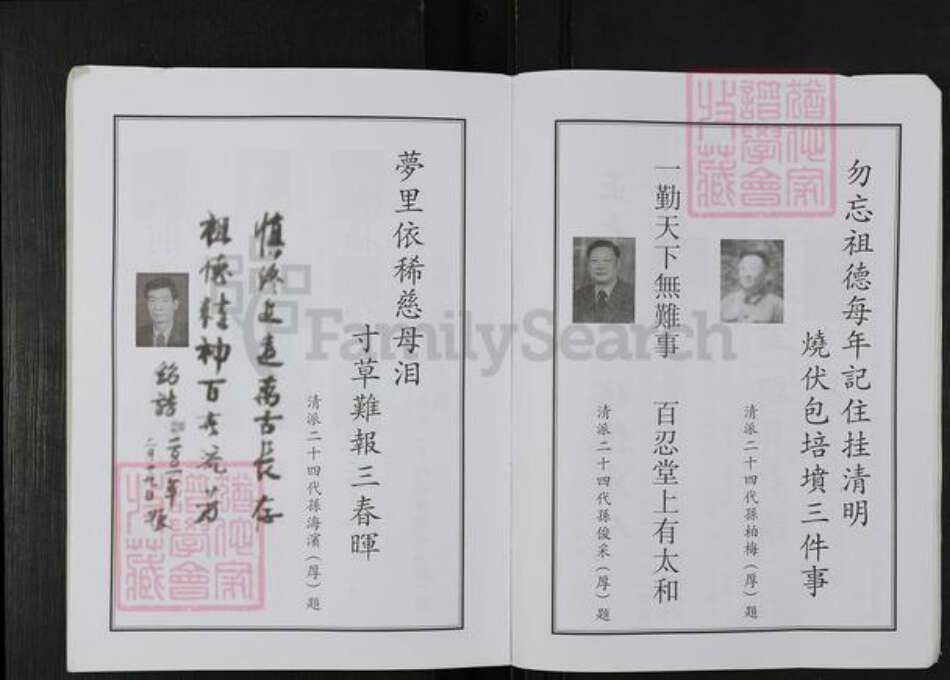 勿忘祖德每年記住挂清明
燒伏包培墳三件事
清派二十四代孫柏梅（厚）題
一勤天下無難事 百忍堂上有太和
清派二十四代孫俊采（厚）題
夢里依稀慈母泪
寸草難報三春暉
清派二十四代孫海濱（厚）題
慎終追遠萬古長存
祖德精神百世流芳
銘誥
二月十九日
家譜學會收藏
家譜學會收藏
FamilySearch